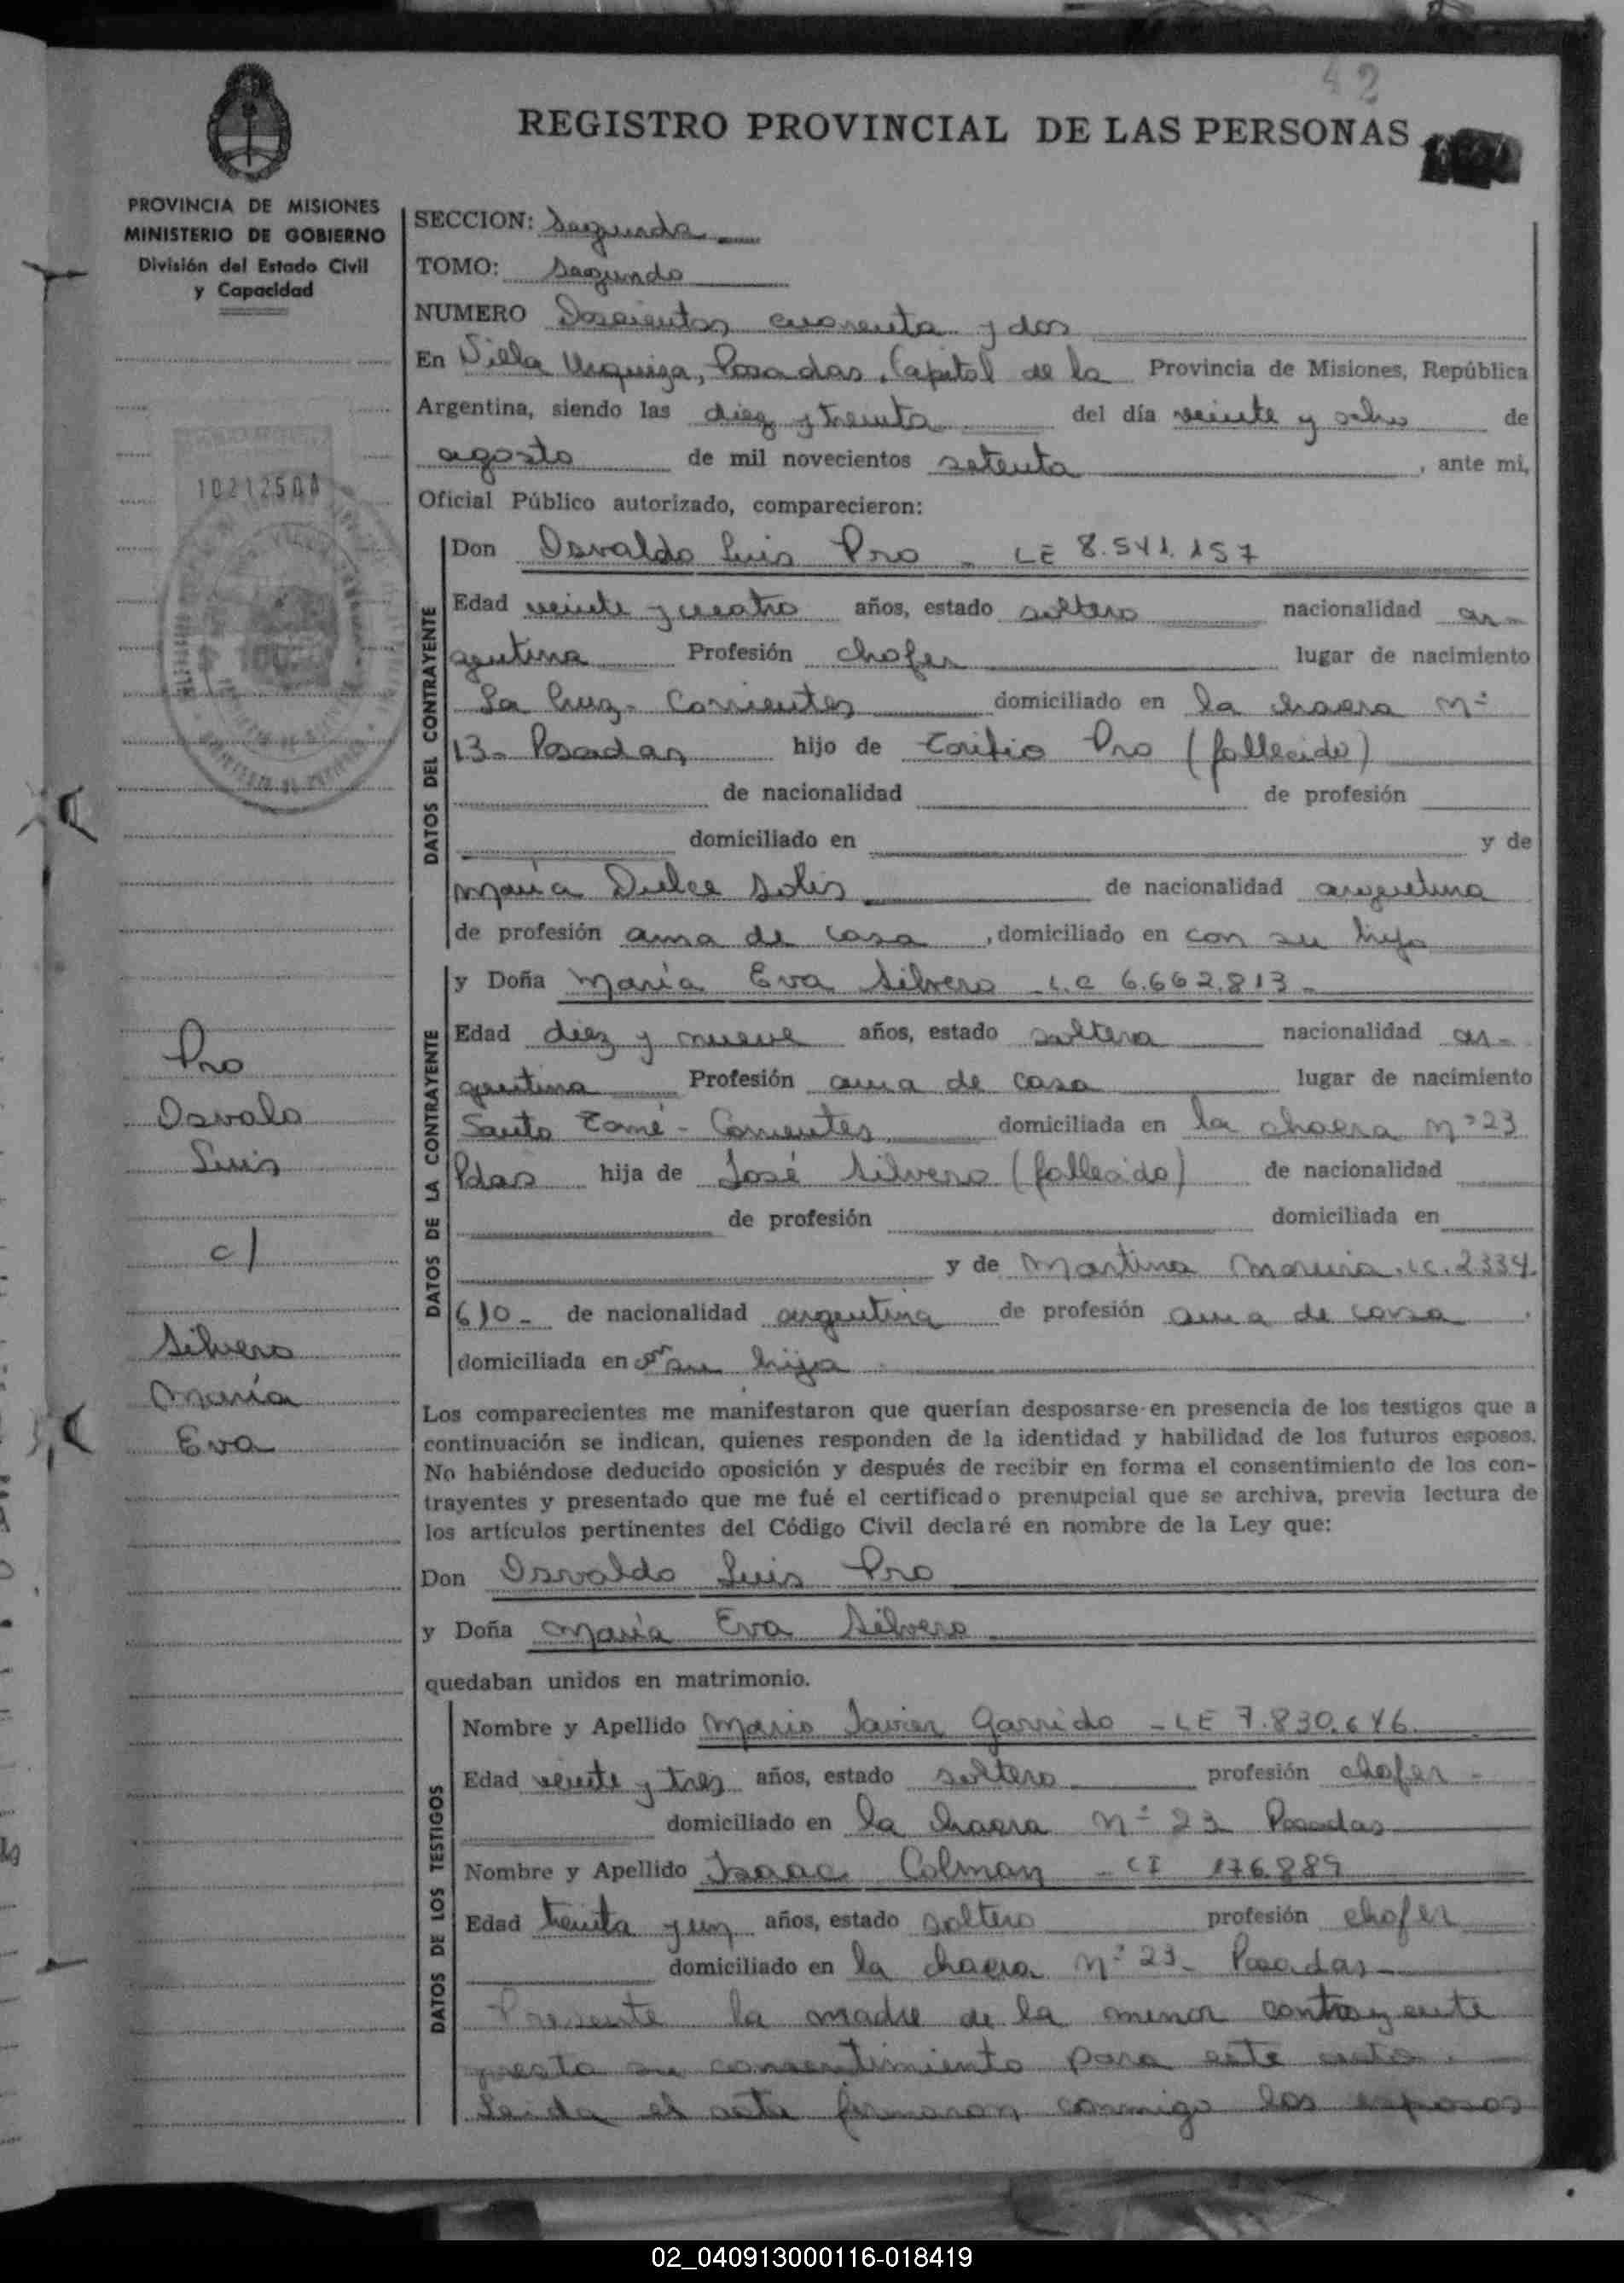 42
REGISTRO PROVINCIAL DE LAS PERSONAS
PROVINCIA DE MISIONES
MINISTERIO DE GOBIERNO
División del Estado Civil
y Capacidad
10212500
Pro
Osvaldo
Luis
c/
Silvero
María
Eva
SECCION: Segunda
TOMO: Segundo
NUMERO Doscientos cuarenta y dos
En Villa Urquiza, Posadas, Capital de la Provincia de Misiones, República
Argentina, siendo las diez y treinta del día veinte y ocho de
agosto de mil novecientos setenta, ante mi,
Oficial Público autorizado, comparecieron:
DATOS DEL CONTRAYENTE
Don Osvaldo Luis Pro - LE 8.541.157
Edad veinte y cuatro años, estado soltero nacionalidad ar-
gentina Profesión chofer lugar de nacimiento
La Cruz - Corrientes domiciliado en la chacra Nº
13 - Posadas hijo de Toribio Pro (fallecido)
de nacionalidad de profesión
domiciliado en y de
María Dulce Solis de nacionalidad argentina
de profesión ama de casa, domiciliado en con su hijo
DATOS DE LA CONTRAYENTE
y Doña María Eva Silvero L.C 6.662.813 -
Edad diez y nueve años, estado soltera nacionalidad ar-
gentina Profesión ama de casa lugar de nacimiento
Santo Tomé - Corrientes domiciliada en la chacra nº 23
Pdas hija de José Silvero (fallecido) de nacionalidad
de profesión domiciliada en
y de Martina Moreira. LC. 2.334.
610 - de nacionalidad argentina de profesión ama de casa
domiciliada en su hija
Los comparecientes me manifestaron que querían desposarse en presencia de los testigos que a
continuación se indican, quienes responden de la identidad y habilidad de los futuros esposos.
No habiéndose deducido oposición y después de recibir en forma el consentimiento de los con-
trayentes y presentado que me fué el certificado prenupcial que se archiva, previa lectura de
los artículos pertinentes del Código Civil declaré en nombre de la Ley que:
Don Osvaldo Luis Pro
y Doña María Eva Silvero
quedaban unidos en matrimonio.
DATOS DE LOS TESTIGOS
Nombre y Apellido Mario Javier Garrido - LE 7.830.646
Edad veinte y tres años, estado soltero profesión chofer -
domiciliado en la chacra Nº 23 Posadas
Nombre y Apellido Isaac Colman - CI 176.889
Edad treinta y un años, estado soltero profesión chofer
domiciliado en la chacra nº 23 - Posadas
Presente la madre de la menor contrayente
presta su consentimiento para este acto.
Leida el acta firmaron conmigo los esposos
02_040913000116-018419